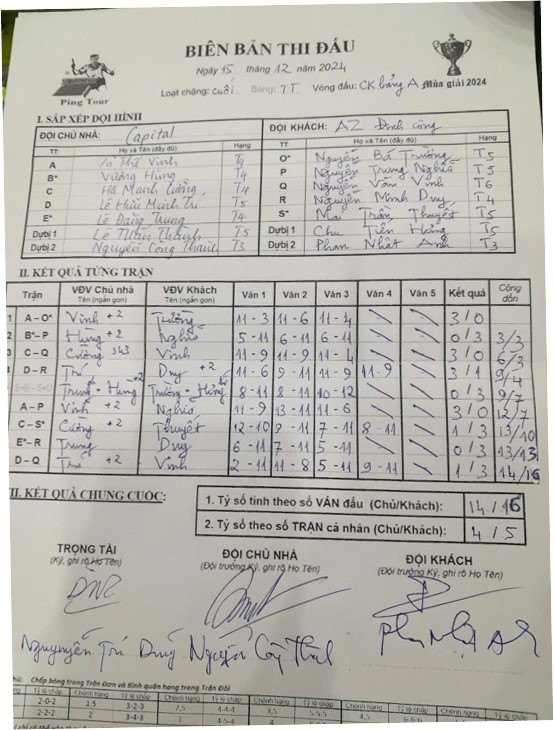 BIÊN BẢN THI ĐẤU
Ping Tour
Ngày 15 tháng 12 năm 2024
Loạt chặng: cuối Bảng: TT Vòng đấu: CK bảng A Mùa giải 2024
I. SẮP XẾP ĐỘI HÌNH
ĐỘI CHỦ NHÀ: Capital ĐỘI KHÁCH: AZ Định Công
TT Họ và Tên (đầy đủ) Hạng TT Họ và Tên (đầy đủ) Hạng
A Vũ Thế Vinh T4 O* Nguyễn Bá Trường T5
B* Vương Hùng T4 P Nguyễn Trung Nghĩa T5
C Hà Mạnh Cường T4 Q Nguyễn Văn Vinh T6
D Lê Hữu Minh Trí T5 R Nguyễn Minh Duy T4
E* Lê Đăng Trung T4 S* Mai Trần Thuyết T5
Dự bị 1 Lê Thân Thành T5 Dự bị 1 Chu Tiến Hùng T5
Dự bị 2 Nguyễn Công Thành T3 Dự bị 2 Phan Nhật Anh T3
II. KẾT QUẢ TỪNG TRẬN
Trận VĐV Chủ nhà Tên (ngắn gọn) VĐV Khách Tên (ngắn gọn) Ván 1 Ván 2 Ván 3 Ván 4 Ván 5 Kết quả Cộng dồn
1 A – O* Vinh +2 Trường 11 - 3 11 - 6 11 - 4 3 / 0
2 B* – P Hùng +2 Nghĩa 5 - 11 6 - 11 6 - 11 0 / 3 3/3
3 C – Q Cường 343 Vinh 11 - 9 11 - 9 11 - 4 3 / 0 6/3
D – R Trí Duy +2 11 - 6 9 - 11 11 - 9 11 - 9 3 / 1 9/4
Trung - Hùng +2 Trường - Hùng 8 - 11 8 - 11 10 - 12 0 / 3 9/7
A – P Vinh +2 Nghĩa 11 - 9 13 - 11 11 - 6 3 / 0 12/7
C – S* Cường +2 Thuyết 12 - 10 9 - 11 7 - 11 8 - 11 1 / 3 13/10
E* – R Trung Duy 6 - 11 7 - 11 5 - 11 0 / 3 13/13
D – Q Trí +2 Vinh 2 - 11 11 - 8 5 - 11 9 - 11 1 / 3 14/16
VII. KẾT QUẢ CHUNG CUỘC:
1. Tỷ số tính theo số VÁN đấu (Chủ/Khách): 14 / 16
2. Tỷ số theo số TRẬN cá nhân (Chủ/Khách): 4 / 5
TRỌNG TÀI ĐỘI CHỦ NHÀ ĐỘI KHÁCH
(Ký, ghi rõ Họ Tên) (Đội trưởng Ký, ghi rõ Họ Tên) (Đội trưởng Ký, ghi rõ Họ Tên)
Trí Duy
Chấp bóng trong Trận Đơn và Bình quân hạng trong Trận Đôi
Chênh hạng Tỷ lệ chấp Chênh hạng Tỷ lệ chấp
2-0-2 1,5 3-2-3 2,5 4-4-4 3,5 5-5-5 4,5 6-6-6
2-2-2 2 3-4-3 3 4-5-4